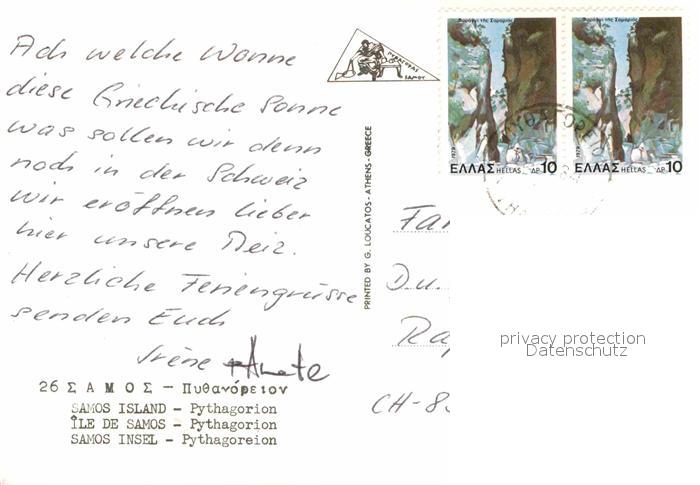 Ach welche Wonne
diese Griechische Sonne
was sollen wir denn
noch in der Schweiz
wir eröffnen lieber
hier unsere Beiz.
Herzliche Feriengrüsse
senden Euch
Irène
26 ΣΑΜΟΣ – Πυθαγόρειον
SAMOS ISLAND – Pythagorion
ÎLE DE SAMOS – Pythagorion
SAMOS INSEL – Pythagoreion
PRINTED BY G. LOUCATOS - ATHENS - GREECE
ΣΑΜΟΥ
Φαράγγι τῆς Σαμαριᾶς
1979
ΕΛΛΑΣ HELLAS ΔΡ. 10
Φαράγγι τῆς Σαμαριᾶς
1979
ΕΛΛΑΣ HELLAS ΔΡ. 10
Fa
Du
Ra
CH-8
privacy protection
Datenschutz